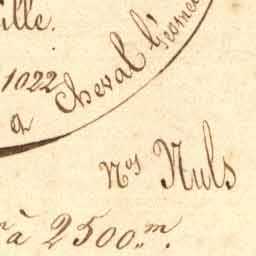 ille.
1022
a Cheval Géomè
Nos Nuls
à 2500 m.